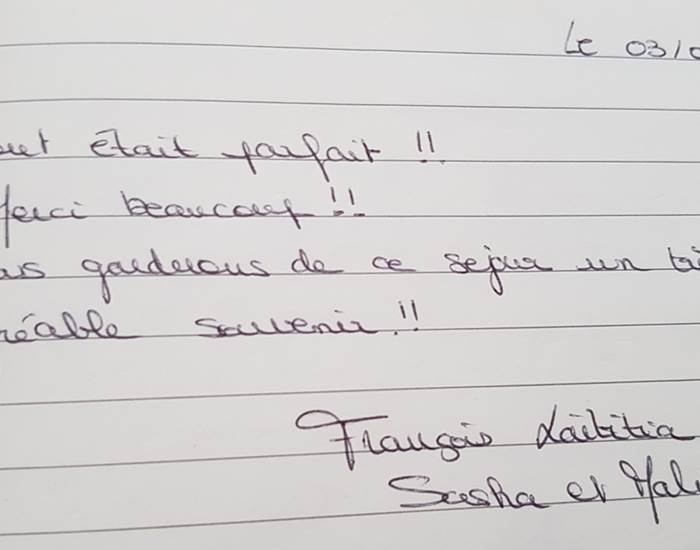 Le 03/0
out était parfait !!
Merci beaucoup !!
us garderons de ce sejur un tr
réable souvenir !!
François Laëtitia
Sasha et Mal